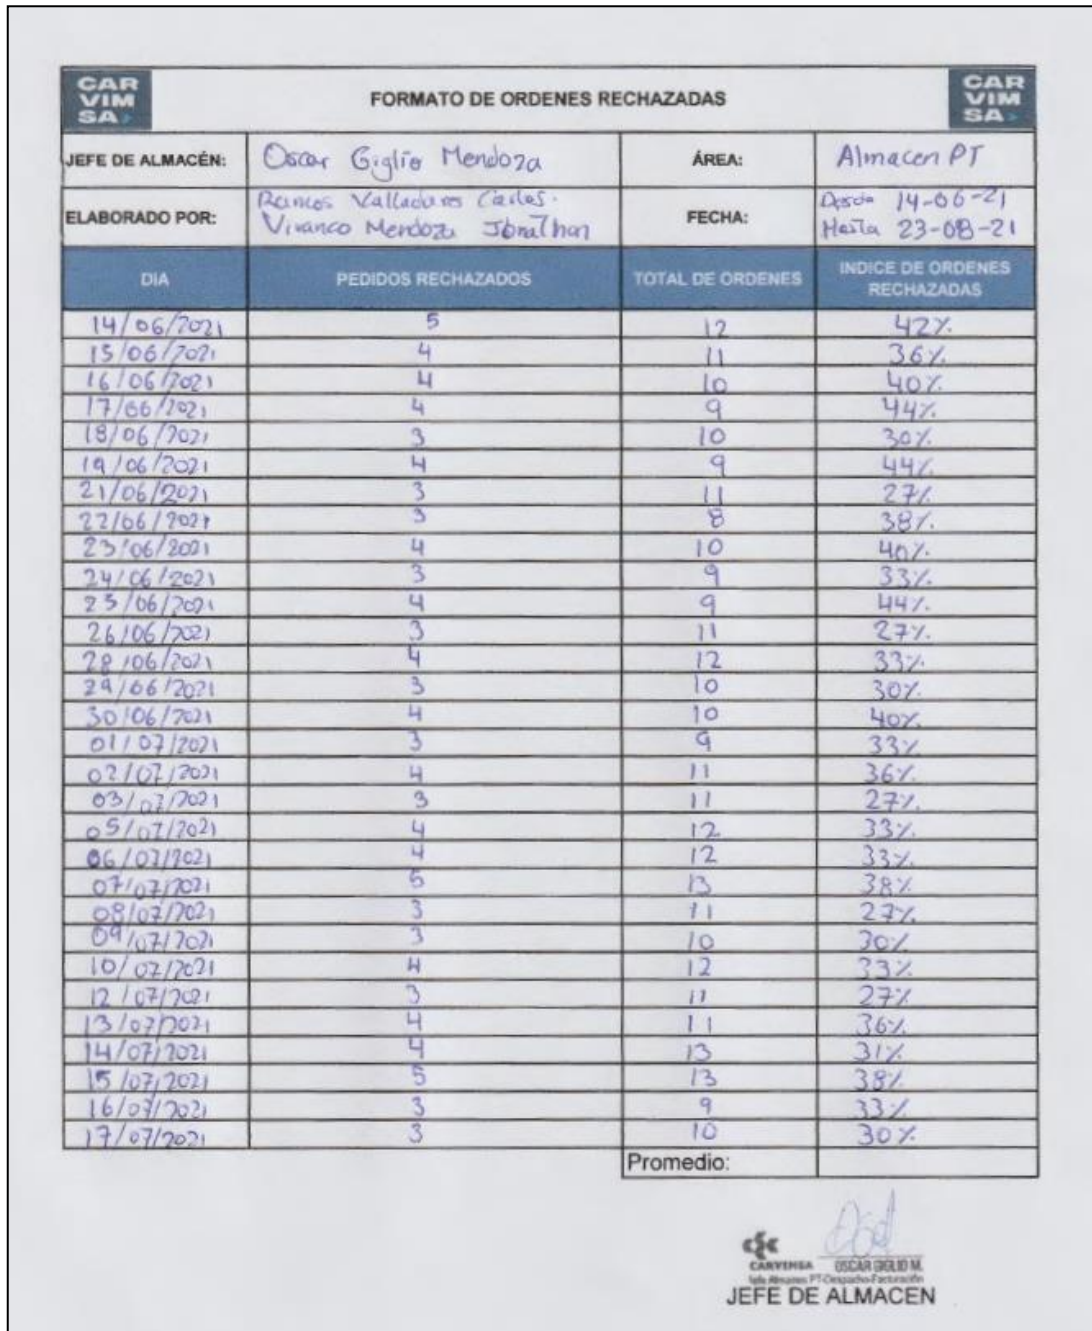 CAR
VIM
SA
FORMATO DE ORDENES RECHAZADAS
CAR
VIM
SA
JEFE DE ALMACÉN: Oscar Giglio Mendoza ÁREA: Almacen PT
ELABORADO POR: Ramos Valladares Carlos.
Vivanco Mendoza Jonathan
FECHA: Desde 14-06-21
Hasta 23-08-21
DIA PEDIDOS RECHAZADOS TOTAL DE ORDENES INDICE DE ORDENES RECHAZADAS
14/06/2021 5 12 42%
15/06/2021 4 11 36%
16/06/2021 4 10 40%
17/06/2021 4 9 44%
18/06/2021 3 10 30%
19/06/2021 4 9 44%
21/06/2021 3 11 27%
22/06/2021 3 8 38%
23/06/2021 4 10 40%
24/06/2021 3 9 33%
25/06/2021 4 9 44%
26/06/2021 3 11 27%
28/06/2021 4 12 33%
29/06/2021 3 10 30%
30/06/2021 4 10 40%
01/07/2021 3 9 33%
02/07/2021 4 11 36%
03/07/2021 3 11 27%
05/07/2021 4 12 33%
06/07/2021 4 12 33%
07/07/2021 5 13 38%
08/07/2021 3 11 27%
09/07/2021 3 10 30%
10/07/2021 4 12 33%
12/07/2021 3 11 27%
13/07/2021 4 11 36%
14/07/2021 4 13 31%
15/07/2021 5 13 38%
16/07/2021 3 9 33%
17/07/2021 3 10 30%
Promedio:
CARVIMSA OSCAR GIGLIO M.
Jefe Almacen PT-Despacho-Facturación
JEFE DE ALMACEN